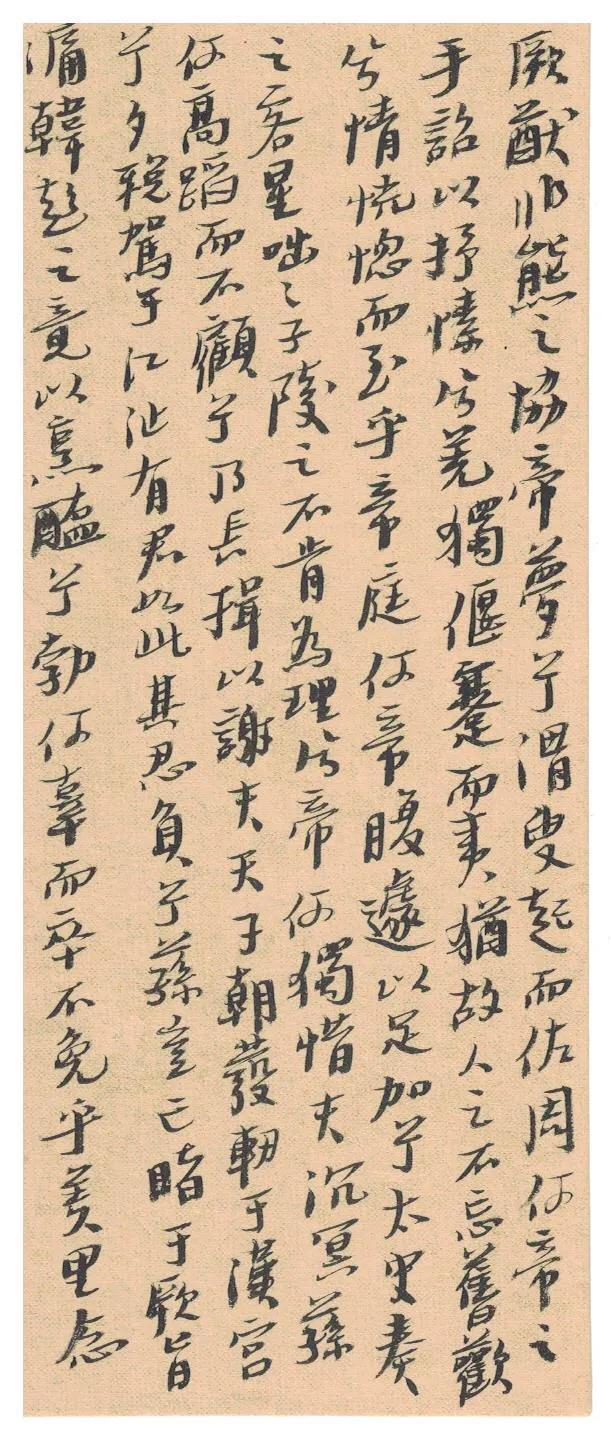 厥猷非熊之協帝夢兮渭叟起而佐周何帝之
手詔以抒愫兮羌獨偃蹇而夷猶故人之不忘舊歡
兮情恍惚而至乎帝庭何帝腹遽以足加兮太史奏
之客星咄之子陵之不肯為理兮帝何獨惜夫沉冥蓀
何高蹈而不顧兮乃長揖以謝夫天子朝發軔于漢宮
兮夕稅駕于江沚有君如此其忍負兮蓀豈已睹于厥旨
韓彭之竟以烹醢兮勃何辜而卒不免乎羑里念